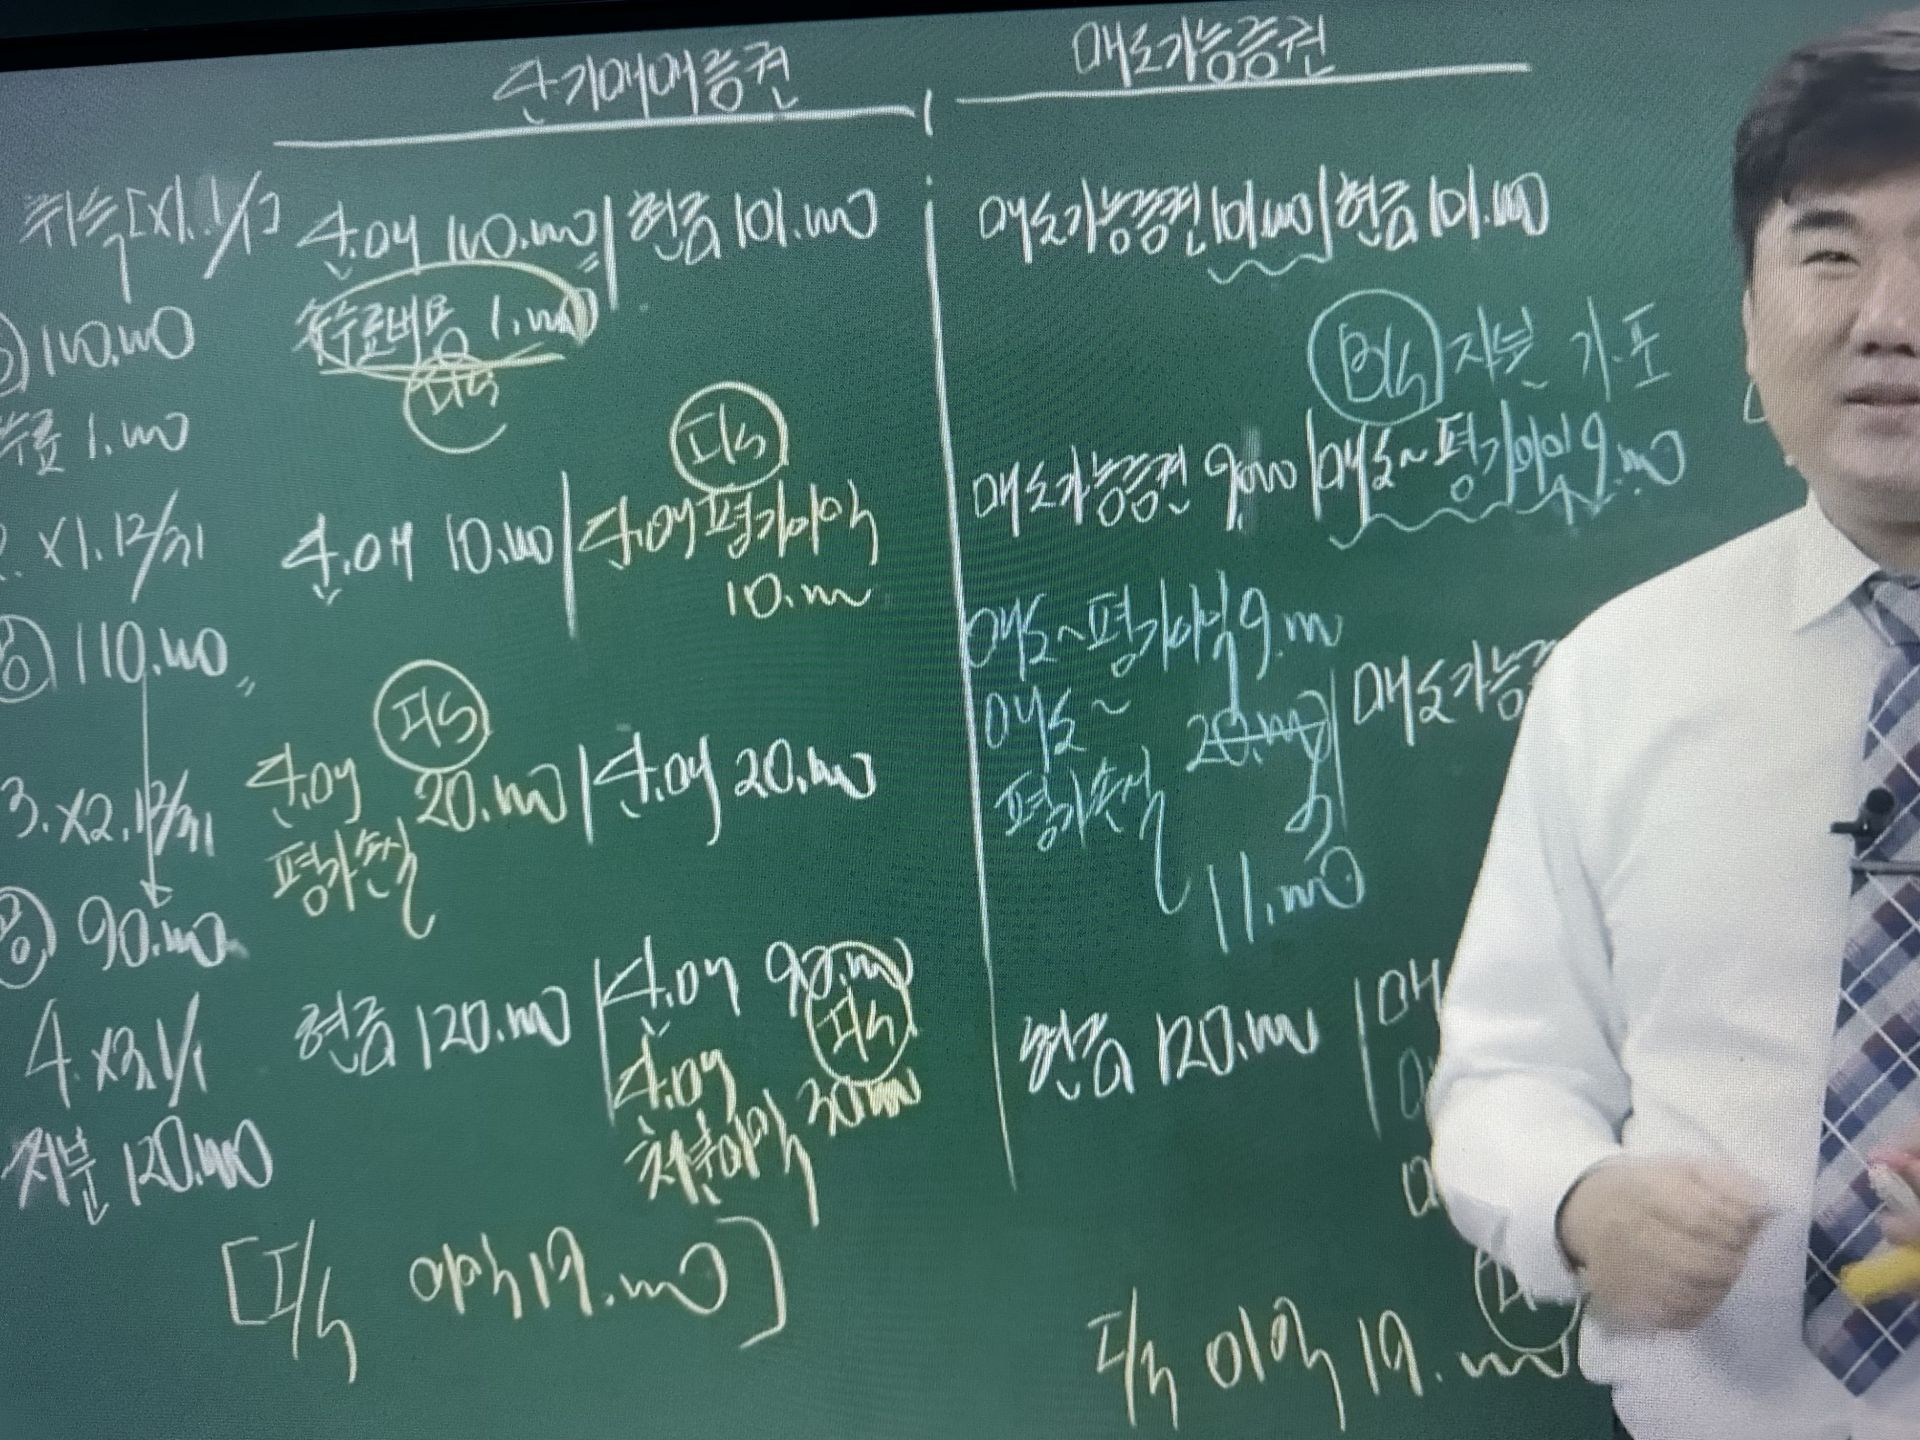 단기매매증권
매도가능증권
취득[x1.1/1]
단.매 100.000 | 현금 101.000
수수료비용 1.000
I/S
매도가능증권 101.000 | 현금 101.000
100.000
수료 1.000
B/S 자본 기.포
2. x1.12/31
공 110.000
단.매 10.000 | 단.매평가이익
10.000
I/S
매도가능증권 9.000 | 매도~평가이익 9.000
3. x2.12/31
공 90.000
단.매
평가손실 20.000 | 단.매 20.000
I/S
매도~평가이익 9.000
매도~
평가손실 20.000 | 매도가능
11.000
4. x3.1/1
처분 120.000
현금 120.000 | 단.매 90.000
단.매
처분이익 30.000
I/S
현금 120.000 | 매
[I/S 이익 19.000]
I/S 이익 19.000